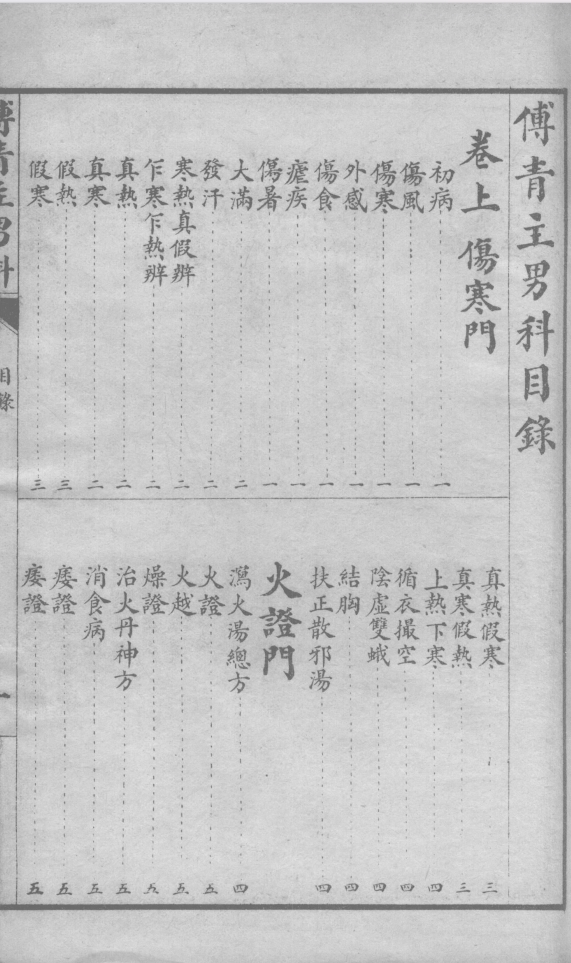 傅青主男科目錄
卷上 傷寒門
初病 一
傷風 一
傷寒 一
外感 一
傷食 一
瘧疾 一
傷暑 一
大滿 二
發汗 二
寒熱真假辨 二
乍寒乍熱辨 二
真熱 二
真寒 二
假熱 三
假寒 三
真熱假寒 三
真寒假熱 三
上熱下寒 四
循衣撮空 四
陰虛雙蛾 四
結胸 四
扶正散邪湯 四
火證門
瀉火湯總方 四
火證 五
火越 五
燥證 五
治火丹神方 五
消食病 五
痿證 五
痿證 五
傅青主男科
目錄
一